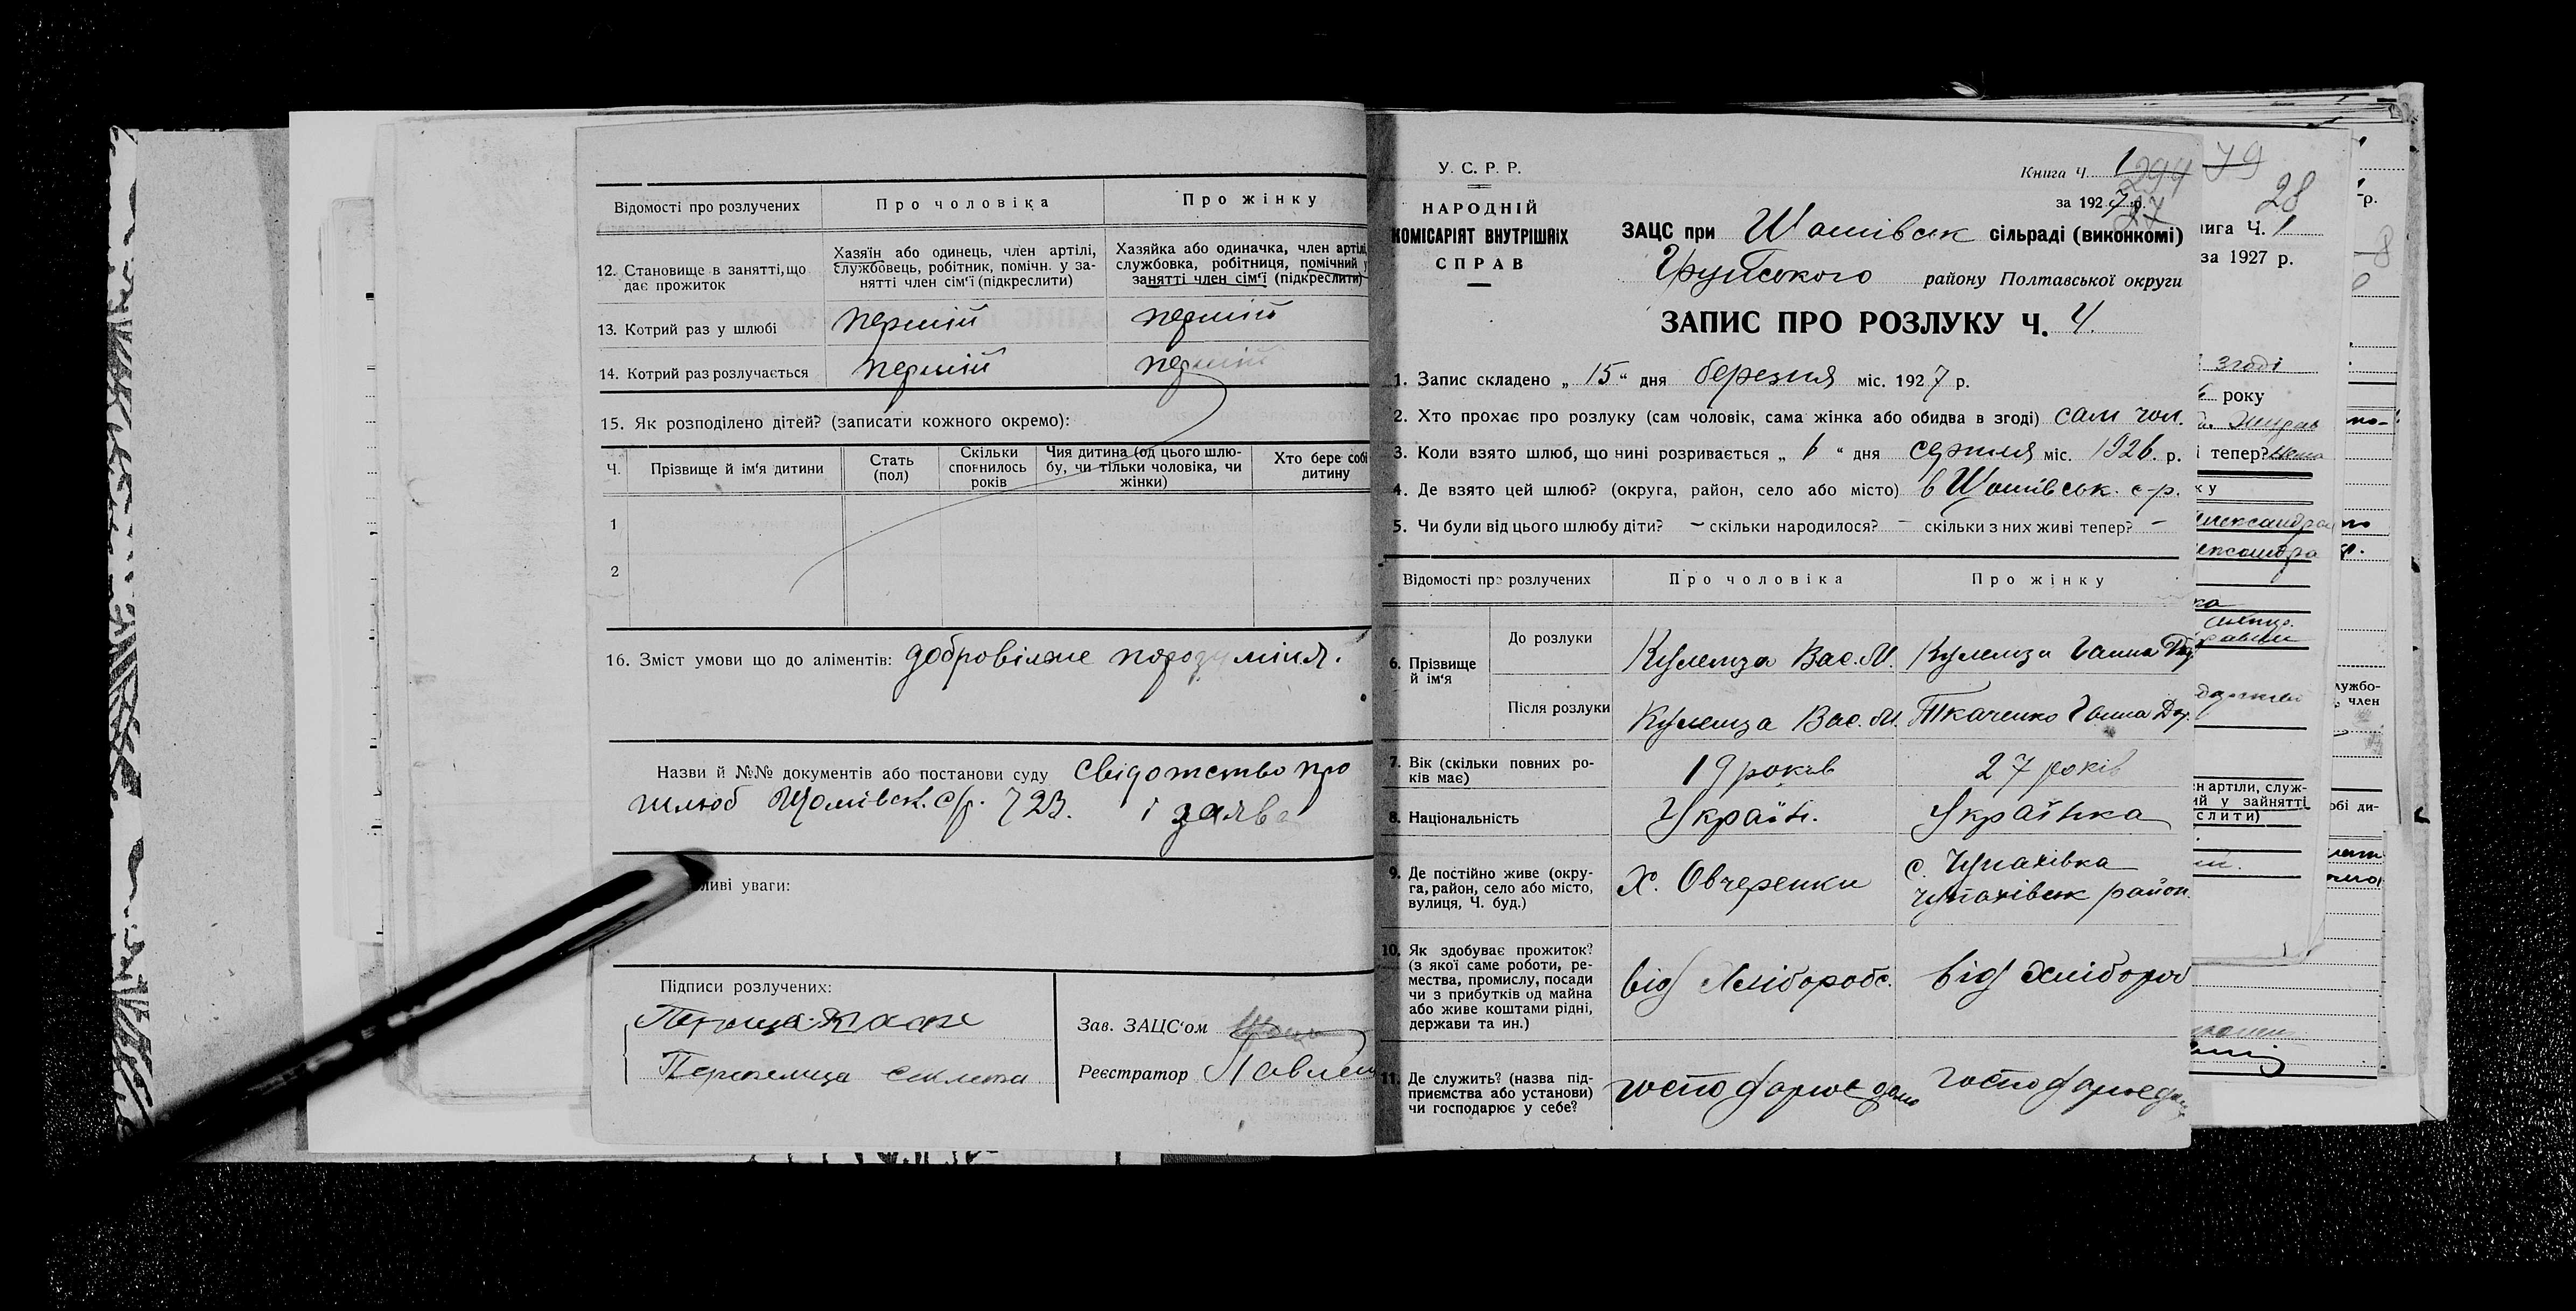 Відомості про розлучених
Про чоловіка
Про жінку
12. Становище в занятті, що
дає прожиток
Хазяїн або одинець, член артілі,
службовець, робітник, помічн. у за-
нятті член сім'ї (підкреслити)
Хазяйка або одиначка, член артілі,
службовка, робітниця, помічний у
занятті член сім'ї (підкреслити)
13. Котрий раз у шлюбі
перший
перший
14. Котрий раз розлучається
перший
перший
15. Як розподілено дітей? (записати кожного окремо):
Ч.
Прізвище й ім'я дитини
Стать
(пол)
Скільки
сповнилось
років
Чия дитина (од цього шлю-
бу, чи тільки чоловіка, чи
жінки)
Хто бере собі
дитину
1
2
16. Зміст умови що до аліментів: добровільне порозуміня.
Назви й №№ документів або постанови суду свідотство про
шлюб с/р. і заява
ливі уваги:
Підписи розлучених:
Зав. ЗАЦС'ом
Реєстратор
У. С. Р. Р.
НАРОДНІЙ
КОМІСАРІЯТ ВНУТРІШНІХ
СПРАВ
Книга Ч. 1
294
за 1927 р.
27
ЗАЦС при сільраді (виконкомі)
району Полтавської округи
ЗАПИС ПРО РОЗЛУКУ Ч. 4.
1. Запис складено „ 15 " дня березня міс. 1927 р.
2. Хто прохає про розлуку (сам чоловік, сама жінка або обидва в згоді) сам чол.
3. Коли взято шлюб, що нині розривається „ 6 " дня серпня міс. 1926. р.
4. Де взято цей шлюб? (округа, район, село або місто) в с-р.
5. Чи були від цього шлюбу діти? – скільки народилося? – скільки з них живі тепер? –
Відомості про розлучених
Про чоловіка
Про жінку
6. Прізвище
й ім'я
До розлуки
Кулемза Вас. М.
Кулемза Ганна
Після розлуки
Кулемза Вас. М.
Ткаченко Ганна
7. Вік (скільки повних ро-
ків має)
19 років
27 років
8. Національність
Україн.
Українка
9. Де постійно живе (окру-
га, район, село або місто,
вулиця, Ч. буд.)
х. Овчеренки
с. Чупахівка
чупахівськ район.
10. Як здобуває прожиток?
(з якої саме роботи, ре-
мества, промислу, посади
чи з прибутків од майна
або живе коштами рідні,
держави та ин.)
від хлібороб.
від хлібороб
11. Де служить? (назва під-
приємства або установи)
чи господарює у себе?
господарює дома
господарює
79
28
нига Ч. 1
за 1927 р.
згоді
року
тепер?
ку
ексондра
н артіли, служ-
ий у зайнятті
слити)
-р.
лужбо-
член
обі ди-